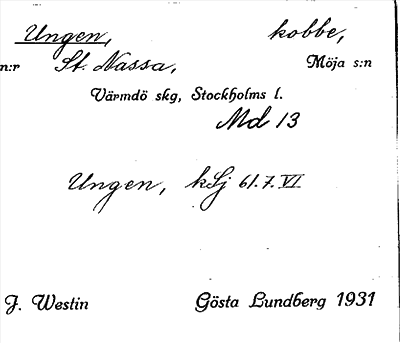 Ungen, kobbe,
n:r St. Nassa, Möja s:n
Värmdö skg, Stockholms l.
Md 13
Ungen, kSj 61.7.VI
J. Westin Gösta Lundberg 1931